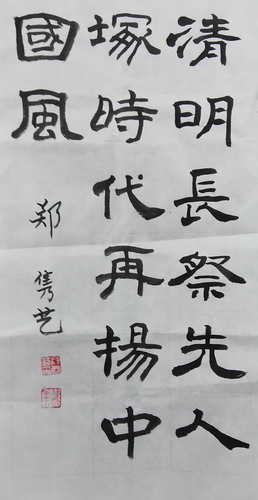 清明長祭先人
塚時代再揚中
國風
郑隽艺